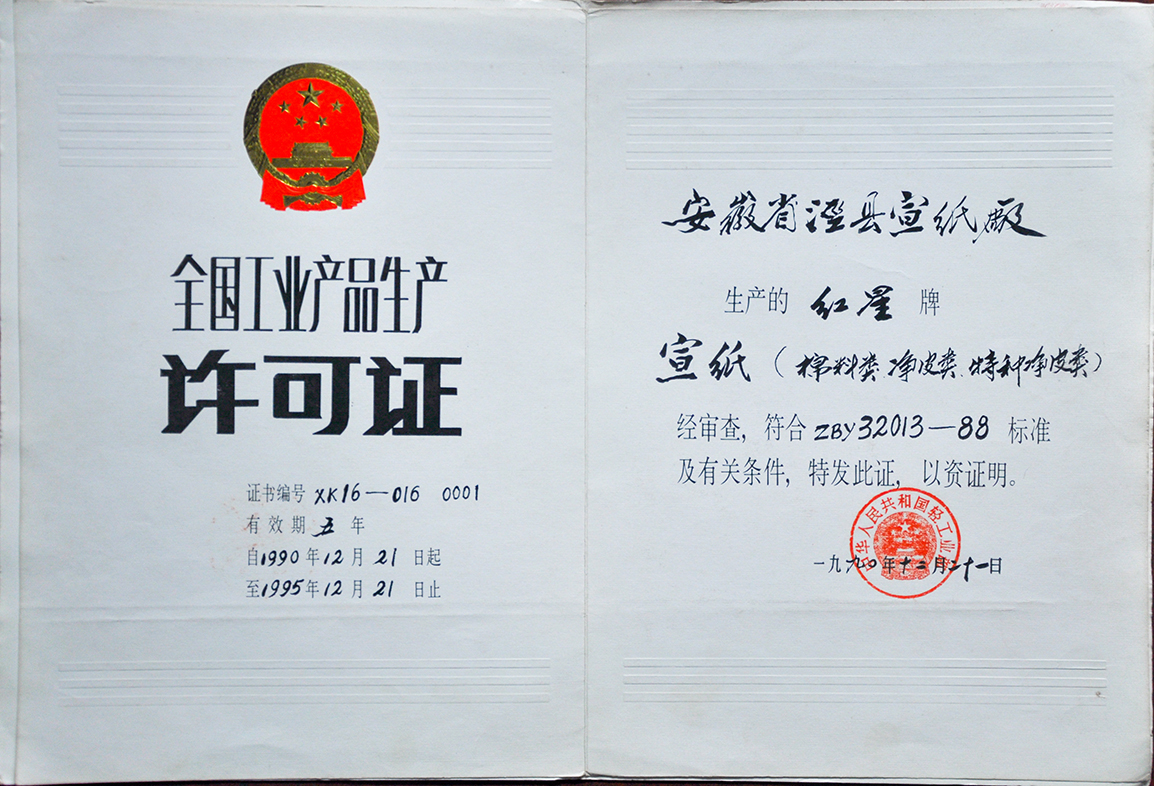 全国工业产品生产
许可证
证书编号 XK16—016 0001
有效期 五 年
自1990年12月21日起
至1995年12月21日止
安徽省泾县宣纸厂
生产的 红星 牌
宣纸（棉料类、净皮类、特种净皮类）
经审查，符合 ZBY32013—88 标准
及有关条件，特发此证，以资证明。
中华人民共和国轻工业部
一九九〇年十二月二十一日